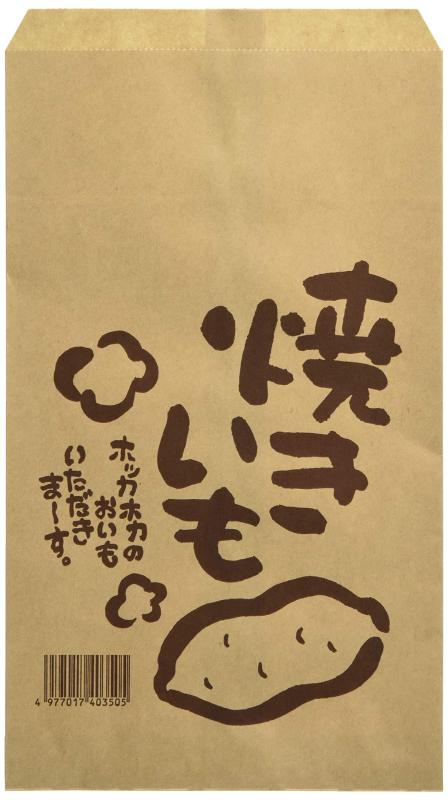 焼き
いも
ホッカホカの
おいも
いただき
ま〜す。
4 977017 403505